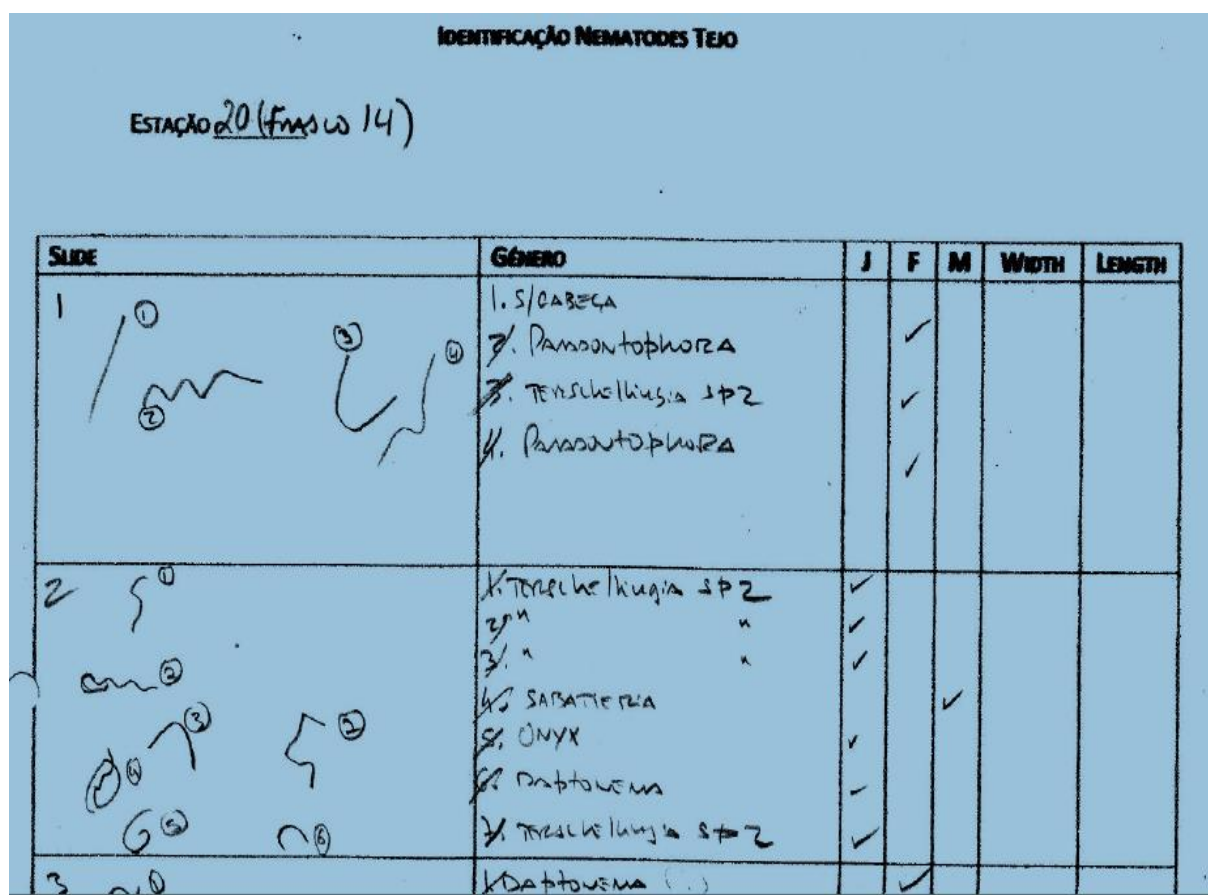 IDENTIFICAÇÃO NEMATODES TEJO
ESTAÇÃO 20 (FRASCO 14)
SLIDE GÉNERO J F M WIDTH LENGTH
1 1. S/CABEÇA
① ③ ④ 2. PARAODONTOPHORA ✓
② 3. TERSCHELLINGIA SP2 ✓
4. PARAODONTOPHORA ✓
2 ① 1. TERSCHELLINGIA SP2 ✓
2. " " ✓
② 3. " " ✓
③ ⑦ 4. SABATIERIA ✓
④ 5. ONYX ✓
6. DAPTONEMA ✓
⑤ ⑥ 7. TERSCHELLINGIA SP2 ✓
3 ① 1. DAPTONEMA (..) ✓